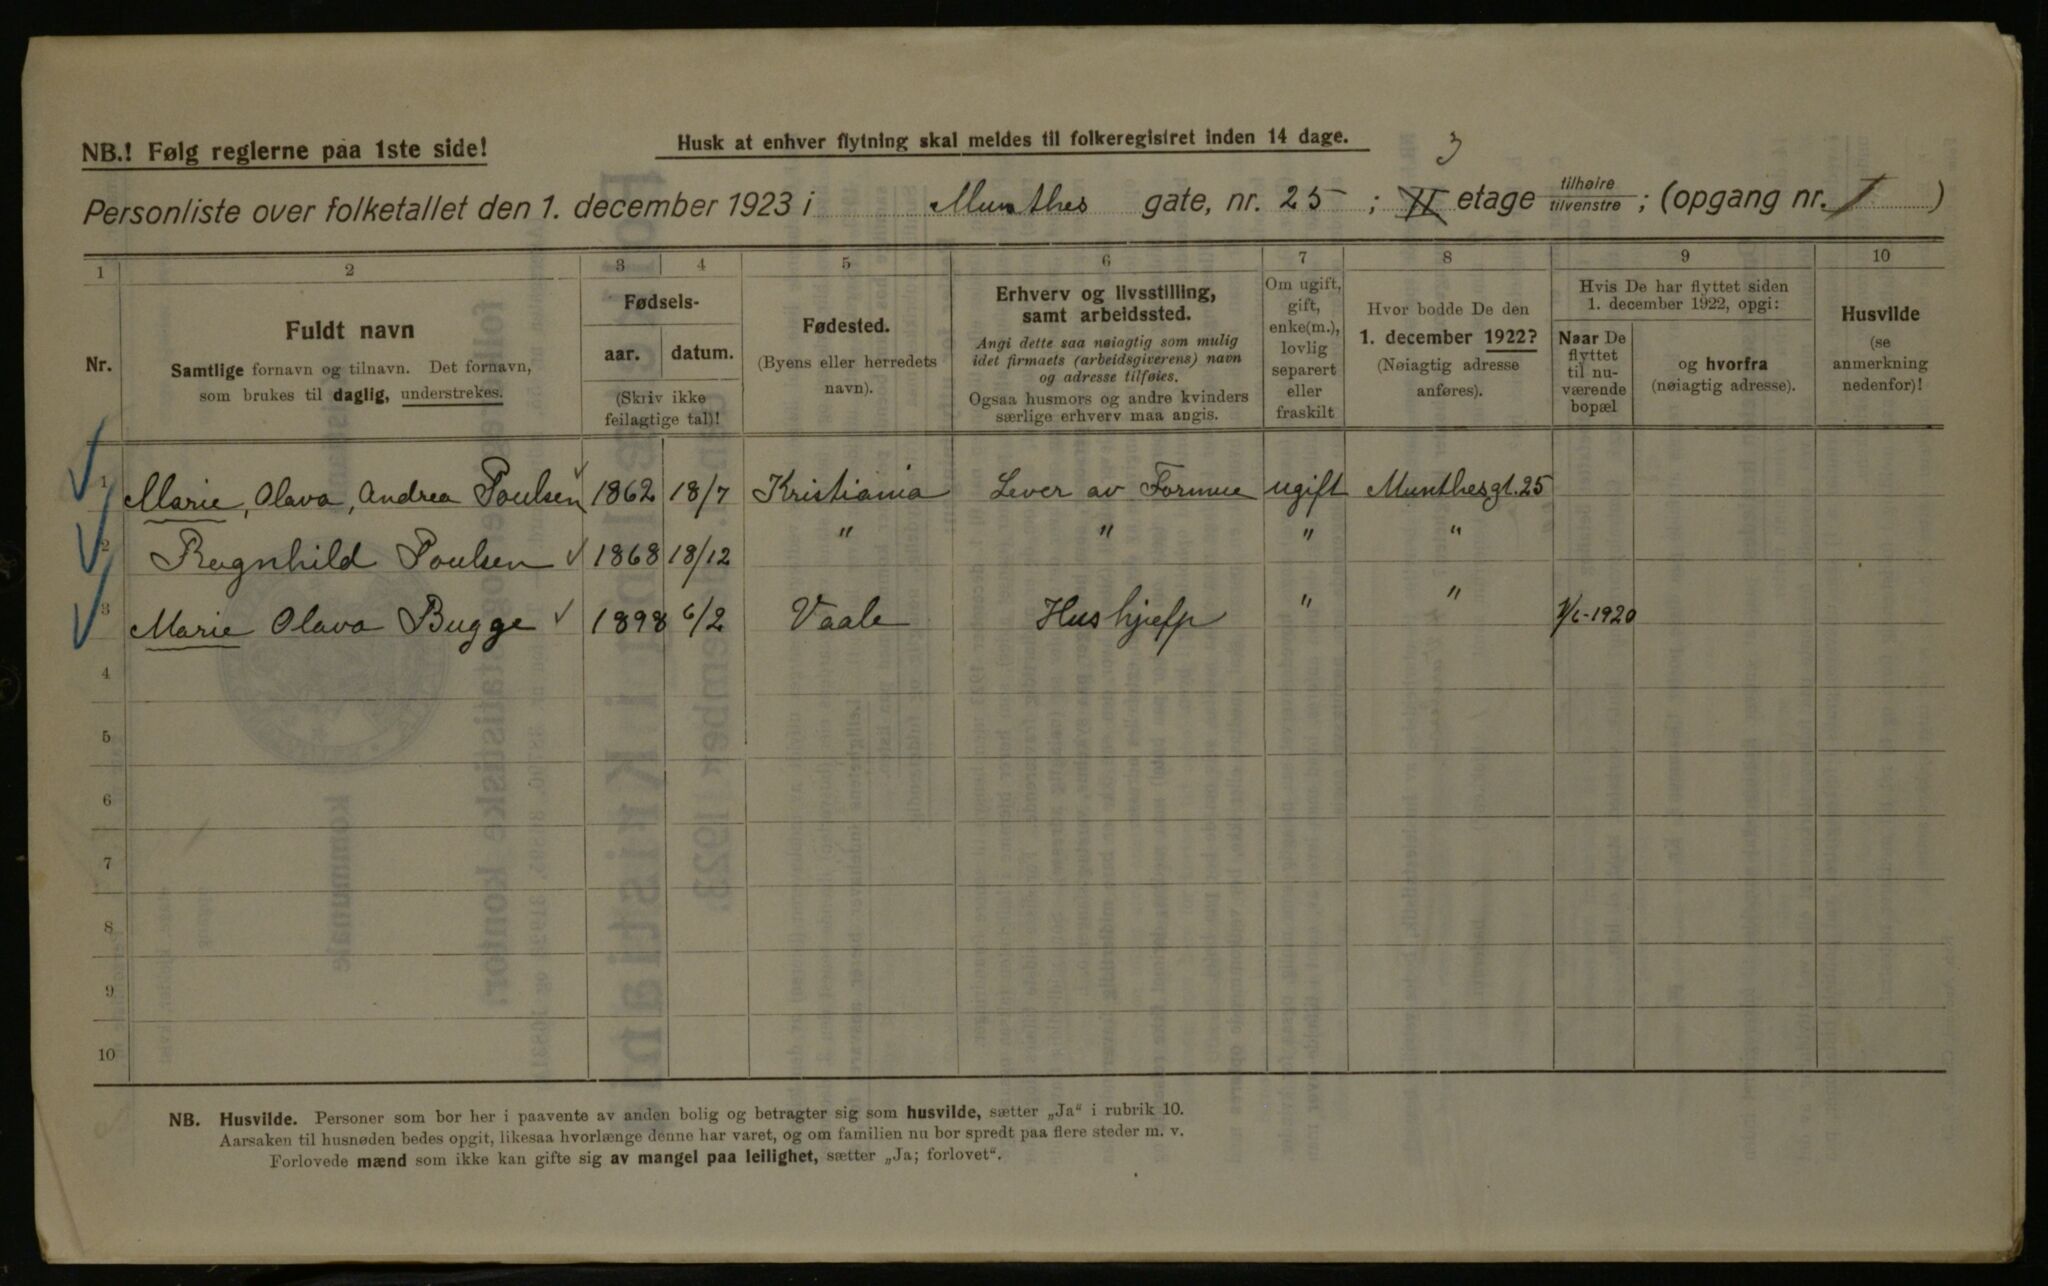 NB.! Følg reglerne paa 1ste side!
Husk at enhver flytning skal meldes til folkeregistret inden 14 dage.
3
Personliste over folketallet den 1. december 1923 i Munthes gate, nr. 25 ; II etage tilhøire tilvenstre ; (opgang nr. I )
1 2 3 4 5 6 7 8 9 10
Nr.
Fuldt navn
Samtlige fornavn og tilnavn. Det fornavn,
som brukes til daglig, understrekes.
Fødsels-
aar. datum.
(Skriv ikke
feilagtige tal)!
Fødested.
(Byens eller herredets
navn).
Erhverv og livsstilling,
samt arbeidssted.
Angi dette saa nøiagtig som mulig
idet firmaets (arbeidsgiverens) navn
og adresse tilføies.
Ogsaa husmors og andre kvinders
særlige erhverv maa angis.
Om ugift,
gift,
enke(m.),
lovlig
separert
eller
fraskilt
Hvor bodde De den
1. december 1922?
(Nøiagtig adresse
anføres).
Hvis De har flyttet siden
1. december 1922, opgi:
Naar De
flyttet
til nu-
værende
bopæl
og hvorfra
(nøiagtig adresse).
Husvilde
(se
anmerkning
nedenfor)!
1 Marie, Olava, Andrea Poulsen 1862 18/7 Kristiania Lever av Formue ugift Munthesgt. 25
2 Ragnhild Poulsen 1868 18/12 " " " "
3 Marie Olava Bugge 1898 6/2 Vaale Hushjelp " " 1920
4
5
6
7
8
9
10
NB. Husvilde. Personer som bor her i paavente av anden bolig og betragter sig som husvilde, sætter „Ja" i rubrik 10.
Aarsaken til husnøden bedes opgit, likesaa hvorlænge denne har varet, og om familien nu bor spredt paa flere steder m. v.
Forlovede mænd som ikke kan gifte sig av mangel paa leilighet, sætter „Ja; forlovet".